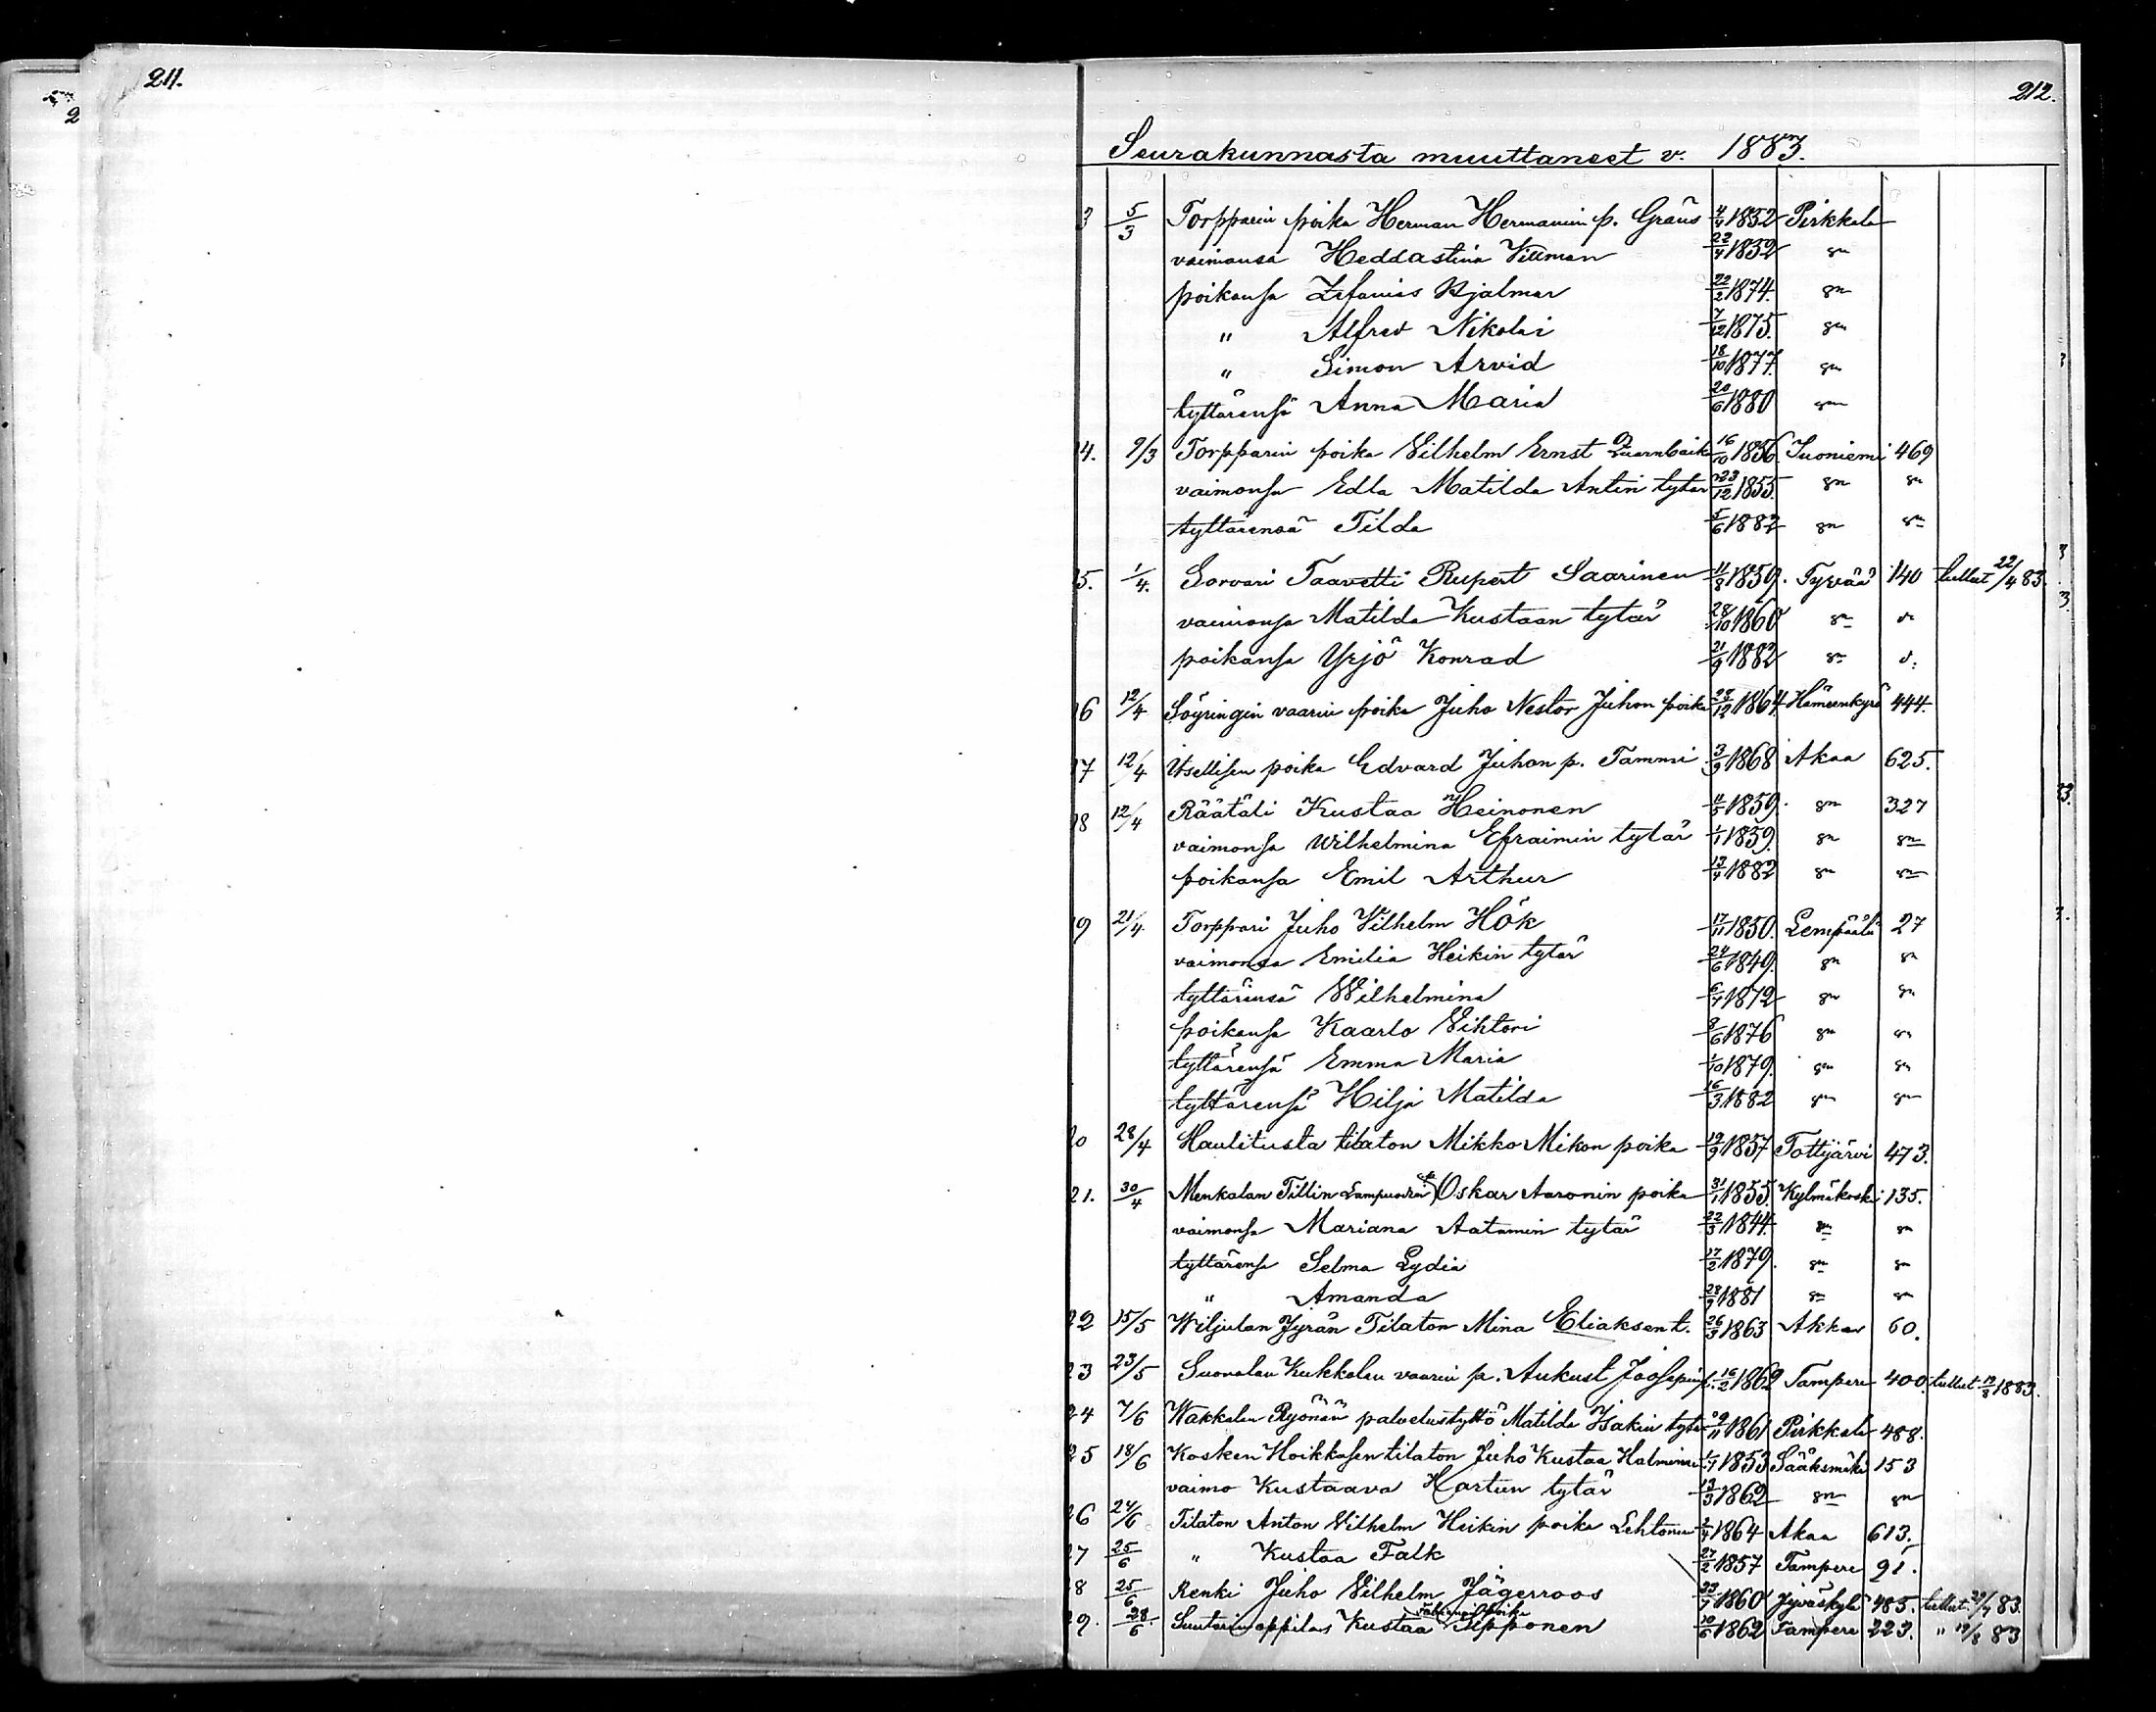 211.
2
212.
Seurakunnasta muuttaneet v. 1883.
3 5/3 Torpparin poika Herman Hermannin p. Gräus 4/4 1852 Pirkkala
vaimonsa Heddastina Villman 22/4 1832 sn
poikansa Zefanias Hjalmar 22/2 1874. sn
" Alfred Nikolai 7/12 1875. sn
" Simon Arvid 18/10 1877. sn
tyttärensä Anna Maria 20/6 1880 sn
14. 9/3 Torpparin poika Vilhelm Ernst 16/10 1856. Suoniemi 469
vaimonsa Edla Matilda Antin tytär 23/12 1855. sn sn
tyttärensä Tilda 5/6 1882 sn sn
15. 1/4. Sorvari Taavetti Rupert Saarinen 11/8 1859. Tyrvää 140 tullut 22/4 83.
vaimonsa Matilda Kustaan tytär 28/10 1860 sn
poikansa Yrjö Konrad 21/9 1882 sn
16 12/4 Söyringin vaarin poika Juho Nestor Juhon poika 28/12 1864. Hämeenkyrö 444.
17 12/4 Itsellisen poika Edvard Juhan p. Tammi 3/9 1868 Akaa 625.
18 12/4 Räätäli Kustaa Heinonen 11/5 1859. sn 327
vaimonsa Wilhelmina Efraimin tytär 1/1 1859. sn sn
poikansa Emil Arthur 13/4 1882 sn sn
19 21/4. Torppari Juho Vilhelm Hök 17/11 1850. Lempäälä 27
vaimonsa Emilia Heikin tytär 24/6 1849. sn sn
tyttärensä Wilhelmina 6/4 1872 sn sn
poikansa Kaarlo Vihtori 8/6 1876 sn sn
tyttärensä Emma Maria 1/10 1879. sn sn
tyttärensä Hilja Matilda 16/3 1882 sn sn
20 28/4 Haulitusta tilaton Mikko Mikon poika 19/9 1857 Tottijärvi 473.
21. 30/4 Menkalan Tillin Lampuodin Oskar Aaronin poika 31/1 1855. Kylmäkoski 135.
vaimonsa Mariana Aatamin tytär 22/3 1844. sn sn
tyttärensä Selma Lydia 17/2 1879. sn sn
" Amanda 28/9 1881 sn sn
22 15/5 Wiljulan Jyrän Tilaton Mina Eliaksen t. 26/3 1863 Akkas 60.
23 23/5 Suonalan Kukkolan vaarin p. Aukust Joosepin p. 16/2 1862 Tampere 400. tullut 19/8 1883.
24 7/6 Wakkalan Ryönän palvelustyttö Matilda Isakin tytär 9/11 1861 Pirkkala 488.
25 18/6 Kosken Hoikkasen tilaton Juho Kustaa Halminen 1/1 1853 Sääksmäki 153
vaimo Kustaava Hartun tytär 13/3 1862 sn sn
26 24/6 Tilaton Anton Vilhelm Heikin poika Lehtonen 2/4 1864 Akaa 613.
27 25/6 " Kustaa Falk 27/2 1857 Tampere 91.
28 25/6 Renki Juho Vilhelm Jägerroos 23/4 1860 Jyväskylä 485. tullut 29/7 83.
29. 28/6. Suutarin oppilas Kustaa Upponen 10/6 1862 Tampere 223. " 19/8 83